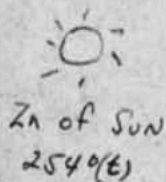 Zn of SUN
254°(t)